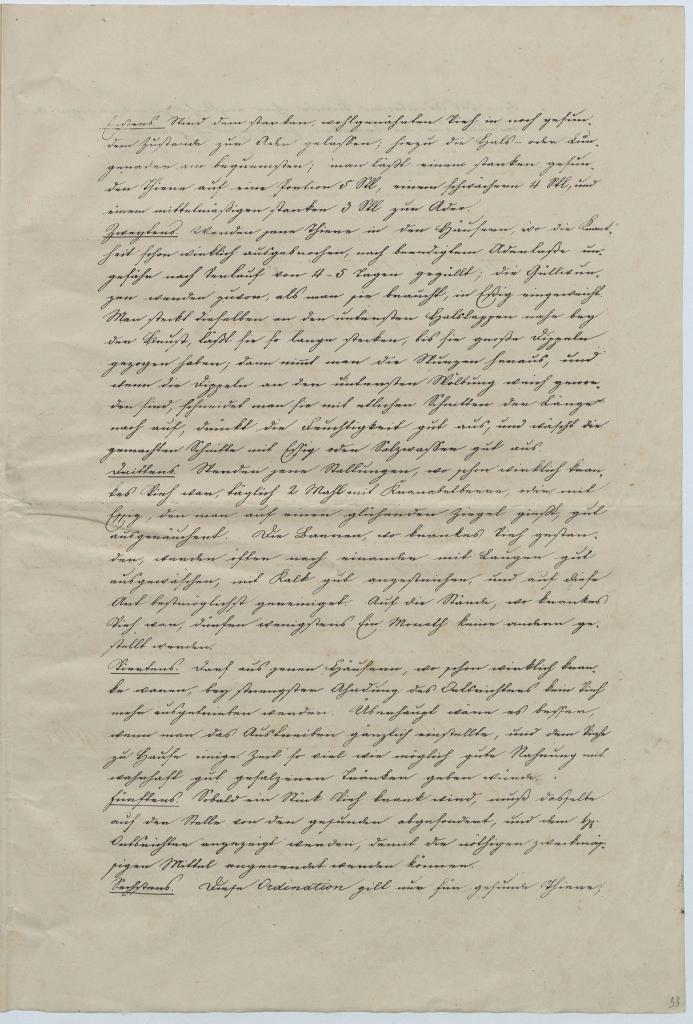 Erstens. Wird dem starken, wohlgenährten Vieh in noch gesun-
dem Zustande zur Ader gelassen; hiezu die Hals- oder Lun-
genader am bequemsten; man läßt einem starken gesun-
den Thiere auf eine Portion 5 ℔, einem schwächern 4 ℔, und
einem mittelmässigen starken 3 ℔ zur Ader.
Zweytens. Werden jene Thiere in den Häusern, wo die Krank-
heit schon wirklich ausgebrochen, nach beendigtem Aderlaße un-
gefähr nach Verlauf von 4-5 Tagen gegillt; die Gillwur-
zen werden zuvor, als man sie braucht, in Eßig eingeweicht.
Man steckt dieselben an den untersten Halslappen nahe bey
der Brust, läßt sie so lange stecken, bis sie große Dippeln
gezogen haben; dann nimmt man die Wurzen heraus, und
wenn die Dippeln an der untersten Wölbung weich gewor-
den sind, schneidet man sie mit etlichen Schnitten der Länge
nach auf, drückt die Feuchtigkeit gut aus, und wäscht die
gemachten Schnitte mit Eßig oder Salzwasser gut aus.
Drittens. Werden jene Stallungen, wo schon wirklich kran-
kes Vieh war, täglich 2 Mahl mit Kranabetbeere, oder mit
Eßig, den man auf einen glühenden Ziegel gießt, gut
ausgeräuchert. Die Barren, wo krankes Vieh gestan-
den, werden öfter nach einander mit Laugen gut
ausgewaschen, mit Kalk gut angestrichen, und auf diese
Art bestmöglichst gereiniget. Auf die Stände, wo krankes
Vieh war, dürfen wenigstens Ein Monath keine andern ge-
stellt werden.
Viertens. Darf aus jenen Häusern, wo schon wirklich kran-
ke waren, bey strengster Ahndung des Ortsrichters kein Vieh
mehr ausgetrieben werden. Überhaupt wäre es besser,
wenn man das Austreiben gänzlich einstellte, und dem Viehe
zu Hause einige Zeit so viel wie möglich gute Nahrung und
wahrhaft gut gesalzenen Tränken geben würde.
Fünftens. Sobald ein Stück Vieh krank wird, muß dasselbe
auf der Stelle von den gesunden abgesondert, und dem
Ortsrichter angezeigt werden, damit die nöthigen zweckmäs-
sigen Mittel angewendet werden können.
Sechstens. Diese Ordination gilt nur für gesunde Thiere;
33